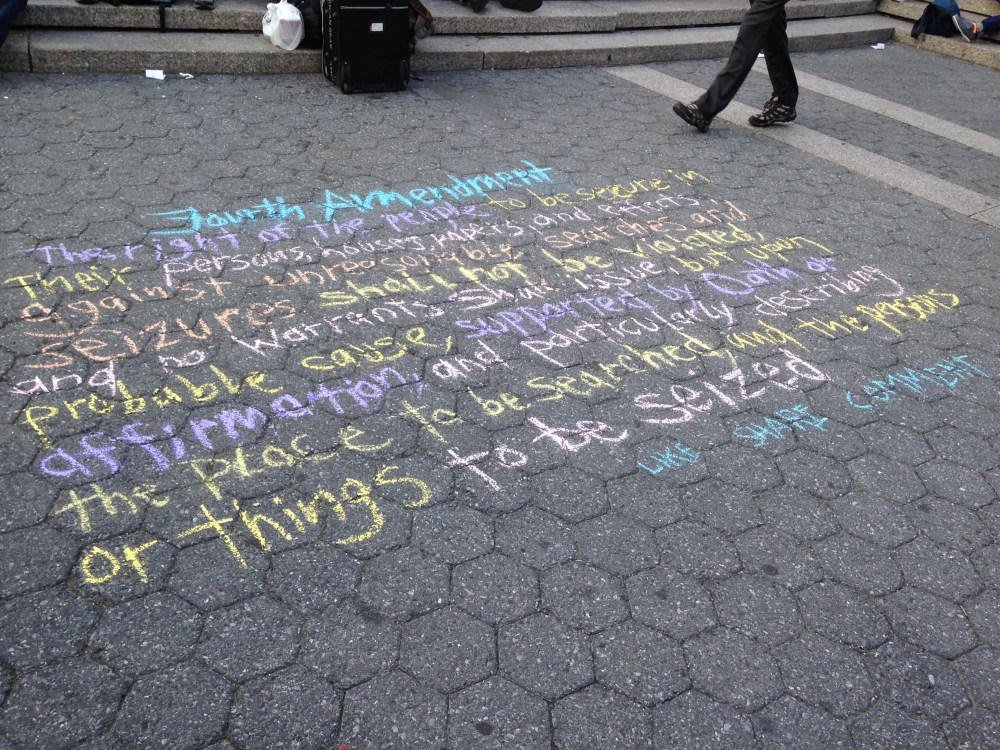 Fourth Amendment
The right of the people, to be secure in
Their persons, houses, papers, and effects
against unreasonable searches and
seizures shall not be violated,
and no warrants shall issue, but upon
probable cause, supported by Oath or
affirmation, and particularly describing
the place to be searched, and the persons
or things to be seized
LIKE SHARE COMMENT